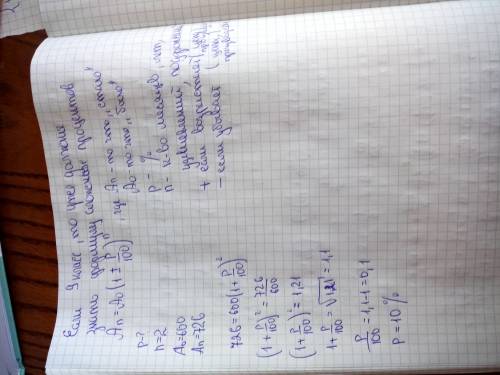 Если 9 класс, то уже должны
знать формулу сложных процентов
An = A0 (1 ± p/100)^n, где An - то что „стало"
A0 - то что „было"
p - %
n - к-во месяцев, лет,
+ если возрастает
- если убывает
p - ?
n = 2
A0 = 600
An = 726
726 = 600 (1 + p/100)^2
(1 + p/100)^2 = 726/600
(1 + p/100)^2 = 1,21
1 + p/100 = √1,21 = 1,1
p/100 = 1,1 - 1 = 0,1
p = 10 %